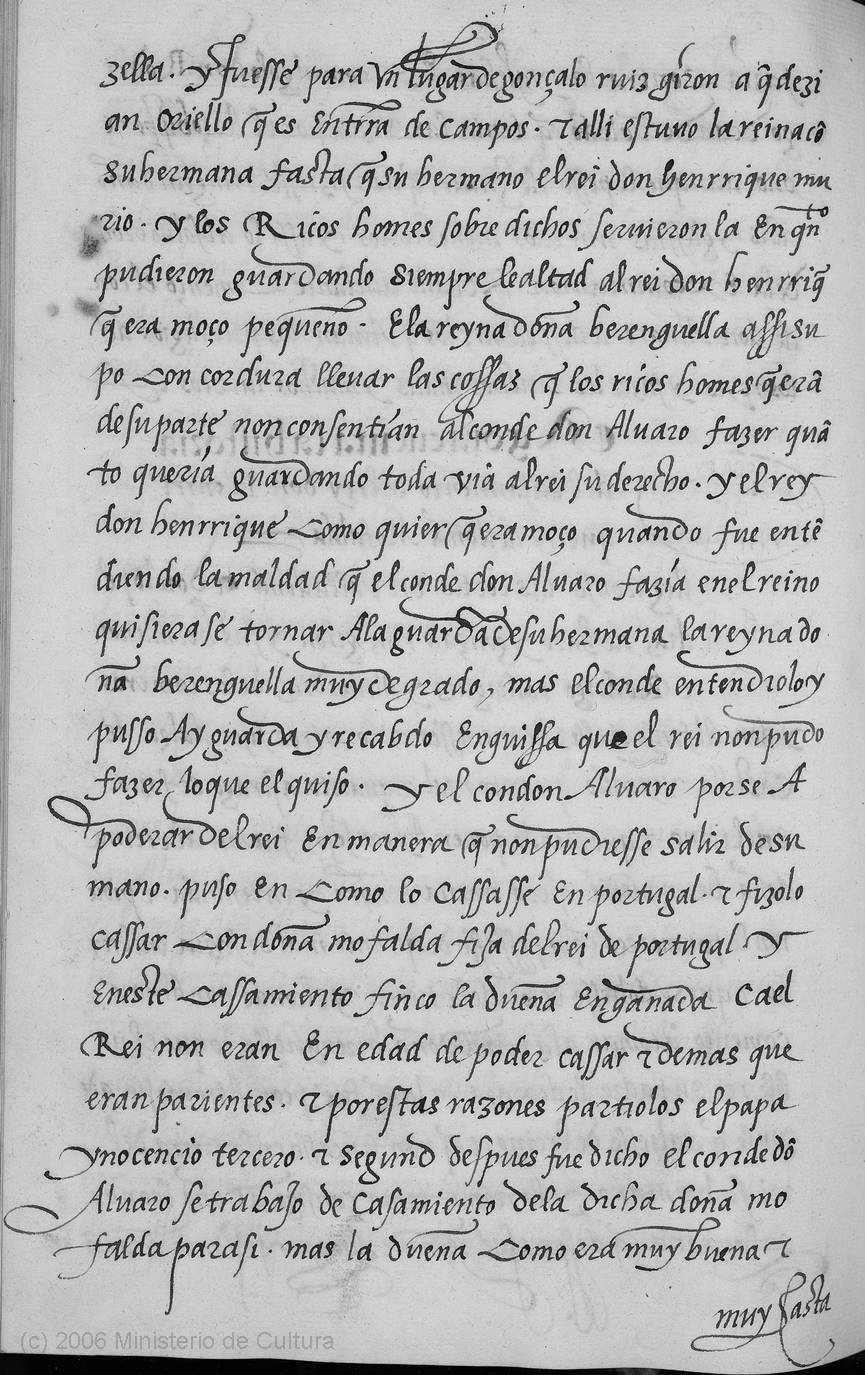 zella. y fuesse para vn lugar de gonçalo ruiz giron a q̃ dezi
an oriello q̃ es en trr̃a de campos. τ alli estuuo la reina cõ
su hermana fasta q̃ su hermano el rei don henrrique mu
rio. y los Ricos homes sobre dichos seruieron la en qñto
pudieron guardando siempre lealtad al rei don henrriq̃
q̃ era moço pequeño. E la reyna doña berenguella assi su
po con cordura lleuar las cossas q̃ los ricos homes q̃ erã
de su parte non consentian al conde don Aluaro fazer quã
to queria guardando toda via al rei su derecho. y el rey
don henrrique como quier q̃ era moço quando fue entẽ
diendo la maldad q̃ el conde don Aluaro fazía en el reino
quisiera se tornar A la guarda de su hermana la reyna do
ña berenguella muy de grado, mas el conde entendiolo y
pusso Ay guarda y recabdo en guissa que el rei non pudo
fazer lo que el quiso. y el con don Aluaro por se A
poderar del rei en manera q̃ non pudiesse salir de su
mano. puso en como lo cassasse en portugal. τ fizolo
cassar con doña mofalda fija del rei de portugal y
en este cassamiento finco la dueña engañada ca el
Rei non eran en edad de poder cassar τ demas que
eran parientes. τ por estas razones partiolos el papa
ynocencio tercero. τ segund despues fue dicho el conde dõ
Aluaro se trabajo de casamiento de la dicha doña mo
falda para si. mas la dueña como era muy buena τ
muy casta
(c) 2006 Ministerio de Cultura